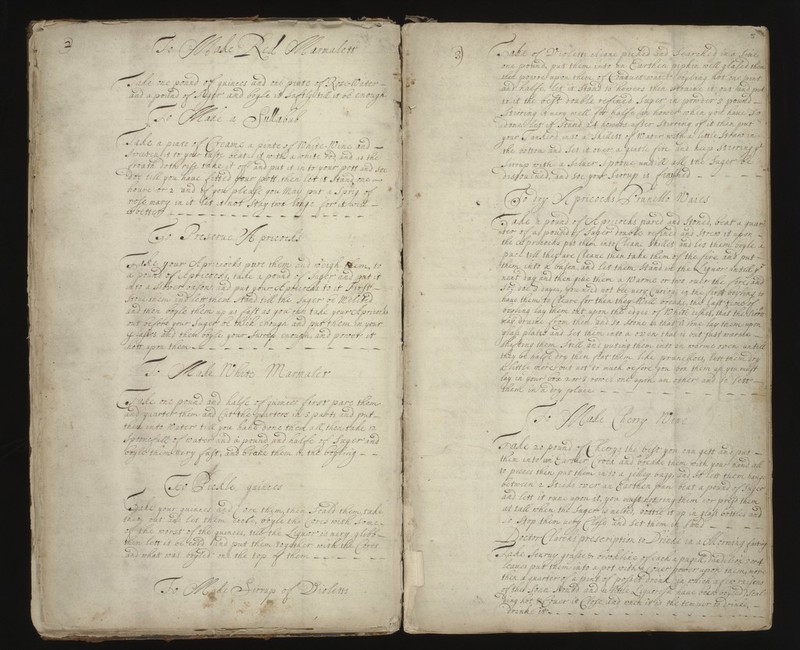 2
To Make Red Marmalett
Take one pound of quinces and one pinte of Rose Water
and a pound of Suger and boyle it Softly till it be enough
To Make a Sullabub
Take a pinte of Creame a pinte of White Wine and
Sweeten it to your taste beat it with a white Rod and as the
froath doth rise take it of and put it into your pott and soe
doe till you have filled your pott then let it Stand one
houre or 2 and if you please you may put a Sprig of
rose mary in it let it not Stay too longe for it will
To Preserve Apricocks
Take your Apricocks pare them and weigh them, to
a pound of Apricocks take a pound of Suger and put it
into a Silver bason and put your Apricocks to it First
stone them and let them Stand till the Suger be Melted
and then boyle them up as fast as you can take your Apricocks
out before your Suger be thick enough and put them in your
glasses and then boyle your Surrop enough, and power it
hott upon them
To Make White Marmalet
Take one pound and halfe of quinces first pare them
and quarter them and Cut the quarters in 2 parts and put
them into Water till you have done them all then take 12
Spoonfulls of water and a pound and halfe of Suger and
boyle them very fast, and brake them in the boyling
To Pickle quinces
Take your quinces and Core them, then Scald them, take
them out and let them coole, boyle the Cores with Some
of the worst of the quinces, till the Liquor is very
then let it be cold and put them together with the Cores
and what was boyled on the top of them
To Make Sirrup of Violetts
3
Take of Violetts cleane picked and Searched in a Sive
one pound, put them into an Earthen pipkin well glased then
power upon them of Conduit water boyleing hot one pint
and halfe let it Stand 12 howers then Straine it out and put
to it the best double refined Suger in powder 2 pound
Stirring it very well for halfe an hower when you have so
done let it Stand 24 howers after Stirring of it then put
your Tankerd into a Skillett of Water with a little Straw in
the bottom and Set it over a gentle fire and keep Stirring
Sirrup with a Silver Spoone untill all the Suger be
dissolved, and soe your Sirrup is finished
To dry Apricocks Prunello Waies
Take a pound of Apricocks pared and Stoned, beat a quar
ter of a pound of Suger double refined and Strow it upon
the Apricocks put them into Cleane Skillet and let them boyle a
pace till they are Cleare then take them of the fire and put
them into a bason and let them Stand in the Liquor
next day and then put them a Warme or two over the fire and
Soe doe 3 dayes, you need not be very Curious in the first boyling to
have them to Cleare for then they Will breake, the Last time of
boyling lay them out upon the edges of White dishes, that the Sirrop
may draine from them
glass plates and Set them into a oven that is but that warme
Shifting them Still and puting them into an warme oven untill
they be halfe dry then
a little more but not to much before you box them up you must
lay in your box not 2 rowes one upon an other and so sett
them in a dry place
To Make Cherry Wine
Take 20 pound of Cherys the best you can gett and put
them into an Earthen Crock and breake them with your hand all
to pieces then put them into a gelly bagg and let them hang
betwixt 2 Sticks over an Earthen pan, beat a pound of Suger
and lett it runn upon it, you must not wring them nor press them
at all when the Suger is melted, bottle it up in glass bottles and
Stop them very Close and Set them in Sand
Docter Clarks prescription to Drinke in a Morning fasting
Take Scurvy grass
cleane put them into a pot with a Cover power upon them more
then a quarter of a pint of posset drink in which a few raisins
of the Sun Stoned and a little Liquorish have been boyled
hing hot & Cover it Close and when it is the temper to drinke
drinke it